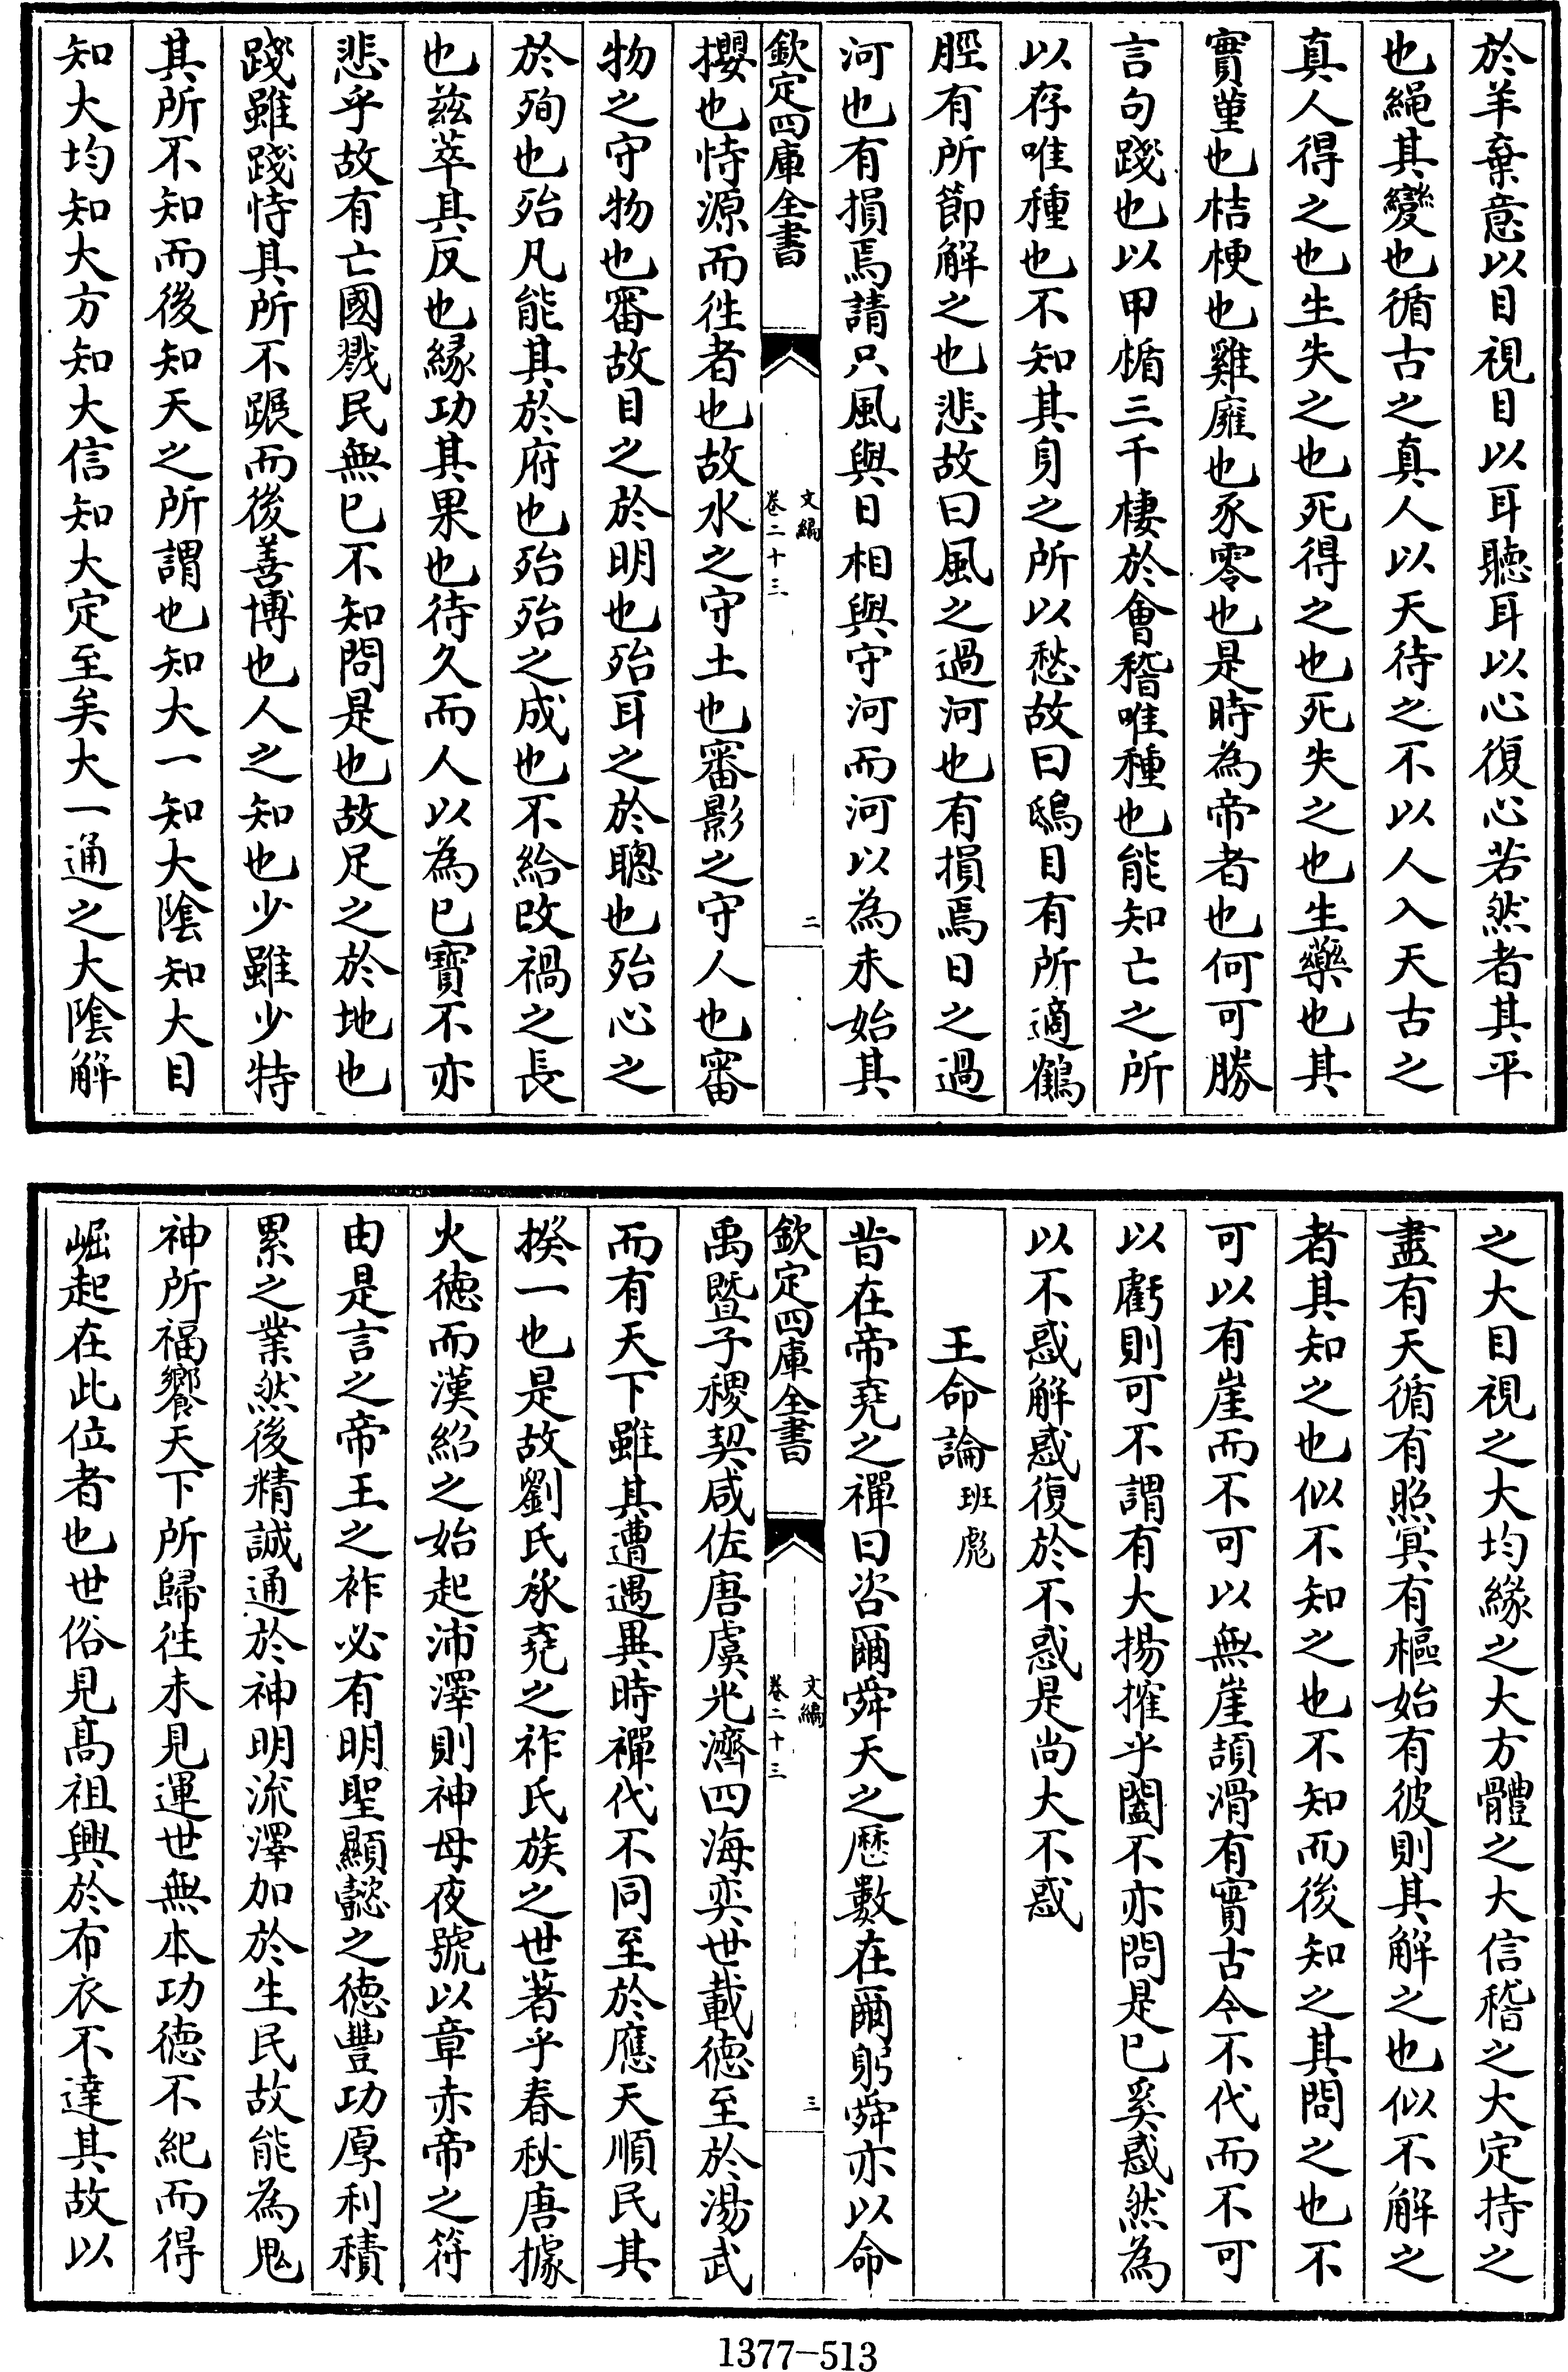 於羊棄意以目視目以耳聽耳以心復心若然者其平
也繩其變也循古之真人以天待之不以人入天古之
真人得之也生失之也死得之也死失之也生藥也其
實菫也桔梗也雞廱也豕零也是時為帝者也何可勝
言句踐也以甲楯三千棲於會稽唯種也能知亡之所
以存唯種也不知其身之所以愁故曰鴟目有所適鶴
脛有所節解之也悲故曰風之過河也有損焉日之過
河也有損焉請只風與日相與守河而河以為未始其
欽定四庫全書
文編
卷二十三
二
攖也恃源而徃者也故水之守土也審影之守人也審
物之守物也審故目之於明也殆耳之於聰也殆心之
於殉也殆凡能其於府也殆殆之成也不給改禍之長
也兹萃其反也緣功其果也待久而人以為已寶不亦
悲乎故有亡國戮民無已不知問是也故足之於地也
踐雖踐恃其所不蹍而後善博也人之知也少雖少特
其所不知而後知天之所謂也知大一知大陰知大目
知大均知大方知大信知大定至矣大一通之大陰解
之大目視之大均緣之大方體之大信稽之大定持之
盡有天循有照冥有樞始有彼則其解之也似不解之
者其知之也似不知之也不知而後知之其問之也不
可以有崖而不可以無崖頡滑有實古今不代而不可
以虧則可不謂有大揚搉乎闔不亦問是已奚惑然為
以不惑解惑復於不惑是尚大不惑
王命論 班彪
昔在帝堯之禪曰咨爾舜天之厯數在爾躬舜亦以命
欽定四庫全書
文編
卷二十三
三
禹暨子稷契咸佐唐虞光濟四海奕世載德至於湯武
而有天下雖其遭遇異時襌代不同至於應天順民其
揆一也是故劉氏承堯之祚氏族之世著乎春秋唐據
火徳而漢紹之始起沛澤則神母夜號以章赤帝之符
由是言之帝王之祚必有明聖顯懿之徳豐功厚利積
累之業然後精誠通於神明流澤加於生民故能為鬼
神所福饗天下所歸徃未見運世無本功德不紀而得
崛起在此位者也世俗見髙祖興於布衣不達其故以
1377—513